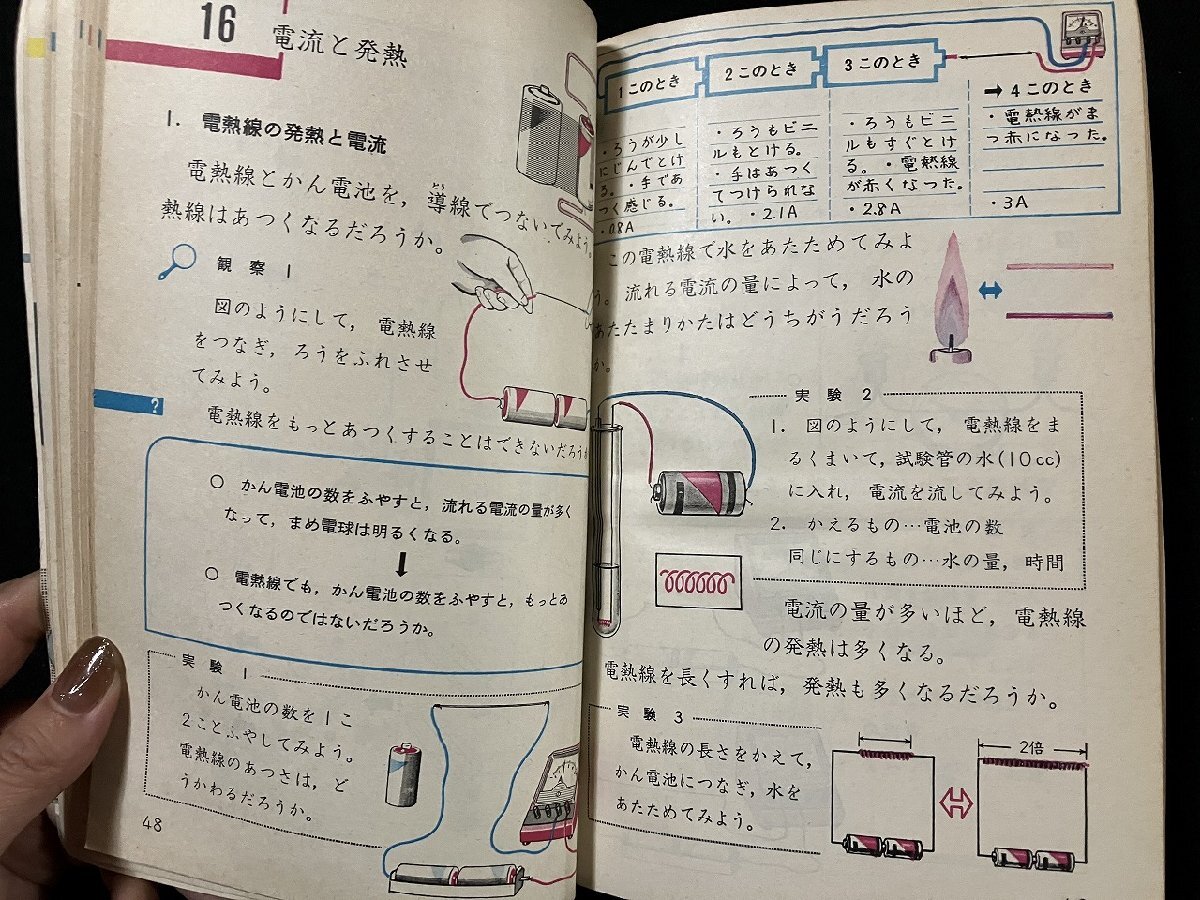 16 電流と発熱
1. 電熱線の発熱と電流
電熱線とかん電池を，導線でつないでみよう。
どう
熱線はあつくなるだろうか。
観察1
図のようにして，電熱線
をつなぎ，ろうをふれさせ
てみよう。
?
電熱線をもっとあつくすることはできないだろうか
○ かん電池の数をふやすと，流れる電流の量が多く
なって，まめ電球は明るくなる。
↓
○ 電熱線でも，かん電池の数をふやすと，もっとあ
つくなるのではないだろうか。
実験1
かん電池の数を1こ
2ことふやしてみよう。
電熱線のあつさは，ど
うかわるだろうか。
48
1このとき
・ろうが少し
にじんでとけ
る。・手であ
つく感じる。
・0.8A
2このとき
・ろうもビニ
ルもとける。
・手はあつく
てつけられな
い。・2.1A
3このとき
・ろうもビニ
ルもすぐとけ
る。・電熱線
が赤くなった。
・2.8A
→4このとき
・電熱線がま
っ赤になった。
・3A
この電熱線で水をあたためてみよ
う。流れる電流の量によって，水の
あたたまりかたはどうちがうだろう
か。
実験2
1. 図のようにして，電熱線をま
るくまいて，試験管の水(10cc)
に入れ，電流を流してみよう。
2. かえるもの…電池の数
同じにするもの…水の量，時間
電流の量が多いほど，電熱線
の発熱は多くなる。
電熱線を長くすれば，発熱も多くなるだろうか。
実験3
電熱線の長さをかえて，
かん電池につなぎ，水を
あたためてみよう。
2倍